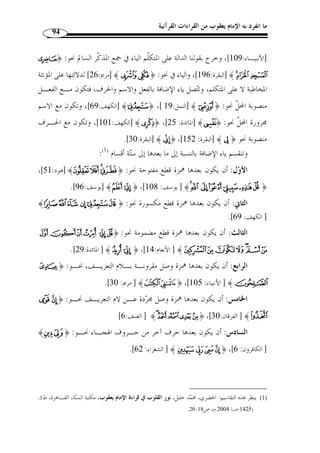 ما انفرد به الإمام يعقوب من القراءات القرآنية
94
[الأنبياء: 109]، وخرج بقولنا الدالة على المتكلّم الياء في جمع المذكّر السالم نحو: ﴿
ﱠ﴾ [البقرة:196]، والياء في نحو: ﴿ ﴾ [مريم:26] لدلالتها على المؤنثة
المخاطبة لا على المتكلم، وتتّصل ياء الإضافة بالفعل والاسم والحرف، فتكون مـع الفعـل
منصوبة المحلّ نحو: ﴿أَوْزِعْنِي﴾ [النمل: 19]، ﴿سَتَجِدُنِي﴾ [الكهف: 69]، وتكون مع الاسم
مجرورة المحلّ نحو: ﴿نَفْسِي﴾ [المائدة: 25]، ﴿ذِكْرِي﴾ [الكهف: 101]، وتكون مع الحـرف
منصوبة نحو ﴿لِي﴾ [البقرة: 152]، ﴿إِنِّي﴾ [البقرة: 30].
وتنقسم ياء الإضافة بالنسبة إلى ما بعدها إلى ستّة أقسام (1):
الأوّل: أن يكون بعدها همزة قطع مفتوحة نحو: ﴿فَطَرَنِي أَفَلَا تَعْقِلُونَ﴾ [هود: 51]،
﴿قُلْ هَٰذِهِ سَبِيلِي أَدْعُو إِلَى اللَّهِ﴾ [يوسف: 108]، ﴿إِنِّي أَعْلَمُ﴾ [يوسف: 96].
الثاني: أن يكون بعدها همزة قطع مكسورة نحو: ﴿قَالَ سَتَجِدُنِي إِن شَاءَ اللَّهُ صَابِرًا﴾
[الكهف: 69].
الثالث: أن يكون بعدها همزة قطع مضمومة نحو: ﴿قُلْ إِنِّي أُمِرْتُ أَنْ أَكُونَ أَوَّلَ
مَنْ أَسْلَمَ وَلَا تَكُونَنَّ مِنَ الْمُشْرِكِينَ﴾ [الأنعام: 14]، ﴿إِنِّي أُرِيدُ﴾ [المائدة: 29].
الرابع: أن يكون بعدها همزة وصل مقرونـة بـلام التعريـف، نحـو: ﴿عِبَادِيَ
الصَّالِحُونَ﴾ [الأنبياء: 105]، ﴿آتَانِيَ الْكِتَابَ﴾ [مريم: 30].
الخامس: أن يكون بعدها همزة وصل مجرّدة عـن لام التعريـف نحـو: ﴿إِنَّ قَوْمِي
اتَّخَذُوا﴾ [الفرقان: 30]، ﴿مِن بَعْدِي اسْمُهُ أَحْمَدُ﴾ [الصف: 6]
السادس: أن يكون بعدها حرف آخر من حـروف الهجـاء نحـو: ﴿وَلِيَ دِينِ﴾
[الكافرون: 6]، ﴿إِنَّ مَعِيَ رَبِّي سَيَهْدِينِ﴾ [الشعراء: 62].
(1) ينظر هذه التقاسيم: الحصري، محمّد خليل، نور القلوب في قراءة الإمام يعقوب، مكتبة السنّة، القـاهرة، ط1،
1425هـ، 2004م، ص18-20.